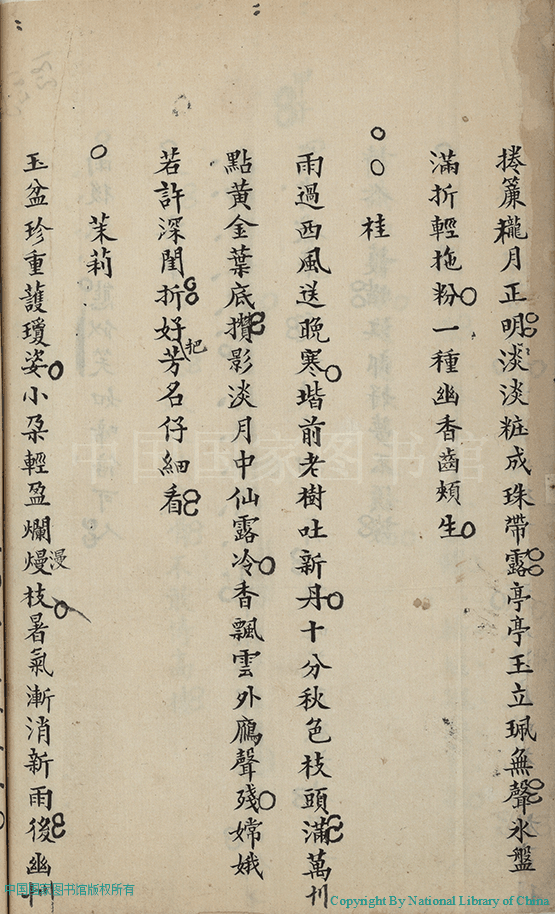 捲簾櫳月正明淡淡粧成珠帶露亭亭玉立珮無聲氷盤
滿折輕拖粉一種幽香齒頰生
桂
雨過西風送晚寒堦前老樹吐新丹十分秋色枝頭滿萬
點黃金葉底攢影淡月中仙露冷香飄雲外鴈聲殘嫦娥
若許深閨折好把芳名仔細看
茉莉
玉盆珍重護瓊姿小朶輕盈爛熳漫枝暑氣漸消新雨後幽
中国国家图书馆
中国国家图书馆版权所有
Copyright By National Library of China